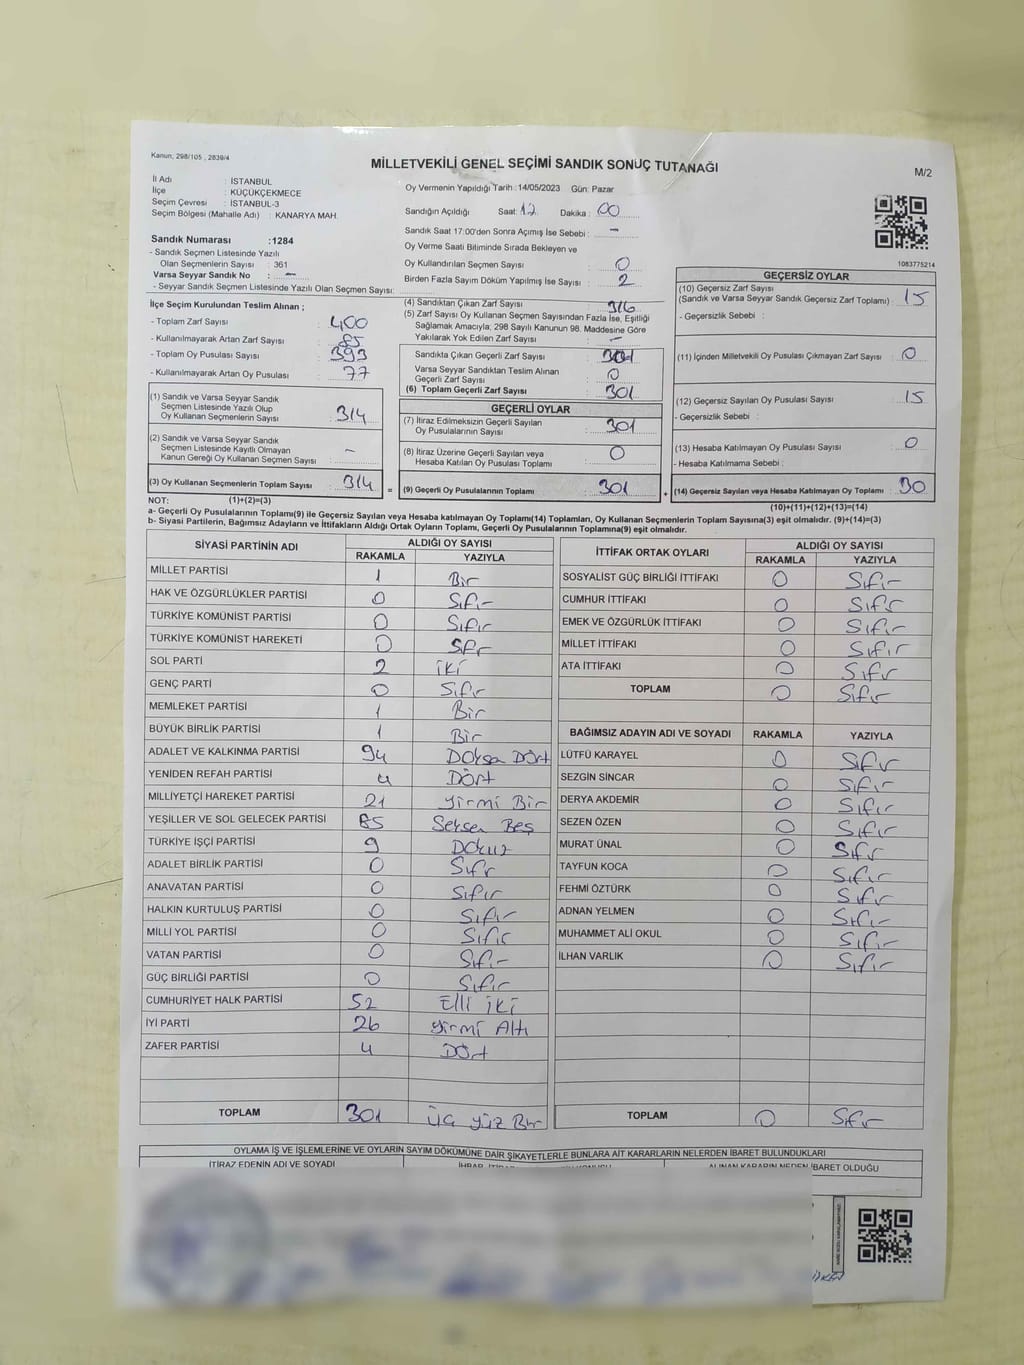 Kanun; 298/105 , 2839/4
MİLLETVEKİLİ GENEL SEÇİMİ SANDIK SONUÇ TUTANAĞI
M/2
İl Adı : İSTANBUL
İlçe : KÜÇÜKÇEKMECE
Seçim Çevresi : İSTANBUL-3
Seçim Bölgesi (Mahalle Adı) : KANARYA MAH.
Sandık Numarası :1284
- Sandık Seçmen Listesinde Yazılı
Olan Seçmenlerin Sayısı : 361
Varsa Seyyar Sandık No : —
- Seyyar Sandık Seçmen Listesinde Yazılı Olan Seçmen Sayısı:
Oy Vermenin Yapıldığı Tarih : 14/05/2023 Gün: Pazar
Sandığın Açıldığı Saat: 12 Dakika : 00
Sandık Saat 17:00'den Sonra Açımış İse Sebebi : —
Oy Verme Saati Bitiminde Sırada Bekleyen ve
Oy Kullandırılan Seçmen Sayısı : 0
Birden Fazla Sayım Döküm Yapılmış İse Sayısı : 2
1083775214
İlçe Seçim Kurulundan Teslim Alınan ;
- Toplam Zarf Sayısı : 400
- Kullanılmayarak Artan Zarf Sayısı : 85
- Toplam Oy Pusulası Sayısı : 393
- Kullanılmayarak Artan Oy Pusulası : 77
(1) Sandık ve Varsa Seyyar Sandık
Seçmen Listesinde Yazılı Olup
Oy Kullanan Seçmenlerin Sayısı : 314
(2) Sandık ve Varsa Seyyar Sandık
Seçmen Listesinde Kayıtlı Olmayan
Kanun Gereği Oy Kullanan Seçmen Sayısı : —
(3) Oy Kullanan Seçmenlerin Toplam Sayısı : 314
(4) Sandıktan Çıkan Zarf Sayısı : 316
(5) Zarf Sayısı Oy Kullanan Seçmen Sayısından Fazla İse, Eşitliği
Sağlamak Amacıyla; 298 Sayılı Kanunun 98. Maddesine Göre
Yakılarak Yok Edilen Zarf Sayısı : —
Sandıkta Çıkan Geçerli Zarf Sayısı : 301
Varsa Seyyar Sandıktan Teslim Alınan
Geçerli Zarf Sayısı : 0
(6) Toplam Geçerli Zarf Sayısı : 301
GEÇERLİ OYLAR
(7) İtiraz Edilmeksizin Geçerli Sayılan
Oy Pusulalarının Sayısı : 301
(8) İtiraz Üzerine Geçerli Sayılan veya
Hesaba Katılan Oy Pusulası Toplamı : 0
= (9) Geçerli Oy Pusulalarının Toplamı : 301
GEÇERSİZ OYLAR
(10) Geçersiz Zarf Sayısı
(Sandık ve Varsa Seyyar Sandık Geçersiz Zarf Toplamı) : 15
- Geçersizlik Sebebi :
(11) İçinden Milletvekili Oy Pusulası Çıkmayan Zarf Sayısı : 0
(12) Geçersiz Sayılan Oy Pusulası Sayısı : 15
- Geçersizlik Sebebi :
(13) Hesaba Katılmayan Oy Pusulası Sayısı : 0
- Hesaba Katılmama Sebebi :
+ (14) Geçersiz Sayılan veya Hesaba Katılmayan Oy Toplamı : 30
NOT: (1)+(2)=(3)
(10)+(11)+(12)+(13)=(14)
a- Geçerli Oy Pusulalarının Toplamı(9) ile Geçersiz Sayılan veya Hesaba katılmayan Oy Toplamı(14) Toplamları, Oy Kullanan Seçmenlerin Toplam Sayısına(3) eşit olmalıdır. (9)+(14)=(3)
b- Siyasi Partilerin, Bağımsız Adayların ve İttifakların Aldığı Ortak Oyların Toplamı, Geçerli Oy Pusulasının Toplamına(9) eşit olmalıdır.
SİYASİ PARTİNİN ADI ALDIĞI OY SAYISI
RAKAMLA YAZIYLA
MİLLET PARTİSİ 1 Bir
HAK VE ÖZGÜRLÜKLER PARTİSİ 0 Sıfır
TÜRKİYE KOMÜNİST PARTİSİ 0 Sıfır
TÜRKİYE KOMÜNİST HAREKETİ 0 Sıfır
SOL PARTİ 2 iki
GENÇ PARTİ 0 Sıfır
MEMLEKET PARTİSİ 1 Bir
BÜYÜK BİRLİK PARTİSİ 1 Bir
ADALET VE KALKINMA PARTİSİ 94 Doksan Dört
YENİDEN REFAH PARTİSİ 4 Dört
MİLLİYETÇİ HAREKET PARTİSİ 21 yirmi Bir
YEŞİLLER VE SOL GELECEK PARTİSİ 85 Seksen Beş
TÜRKİYE İŞÇİ PARTİSİ 9 Dokuz
ADALET BİRLİK PARTİSİ 0 Sıfır
ANAVATAN PARTİSİ 0 Sıfır
HALKIN KURTULUŞ PARTİSİ 0 Sıfır
MİLLİ YOL PARTİSİ 0 Sıfır
VATAN PARTİSİ 0 Sıfır
GÜÇ BİRLİĞİ PARTİSİ 0 Sıfır
CUMHURİYET HALK PARTİSİ 52 Elli iki
İYİ PARTİ 26 yirmi Altı
ZAFER PARTİSİ 4 Dört
TOPLAM 301 üç yüz Bir
İTTİFAK ORTAK OYLARI ALDIĞI OY SAYISI
RAKAMLA YAZIYLA
SOSYALİST GÜÇ BİRLİĞİ İTTİFAKI 0 Sıfır
CUMHUR İTTİFAKI 0 Sıfır
EMEK VE ÖZGÜRLÜK İTTİFAKI 0 Sıfır
MİLLET İTTİFAKI 0 Sıfır
ATA İTTİFAKI 0 Sıfır
TOPLAM 0 Sıfır
BAĞIMSIZ ADAYIN ADI VE SOYADI RAKAMLA YAZIYLA
LÜTFÜ KARAYEL 0 Sıfır
SEZGİN SİNCAR 0 Sıfır
DERYA AKDEMİR 0 Sıfır
SEZEN ÖZEN 0 Sıfır
MURAT ÜNAL 0 Sıfır
TAYFUN KOCA 0 Sıfır
FEHMİ ÖZTÜRK 0 Sıfır
ADNAN YELMEN 0 Sıfır
MUHAMMET ALİ OKUL 0 Sıfır
İLHAN VARLIK 0 Sıfır
TOPLAM 0 Sıfır
OYLAMA İŞ VE İŞLEMLERİNE VE OYLARIN SAYIM DÖKÜMÜNE DAİR ŞİKAYETLERLE BUNLARA AİT KARARLARIN NELERDEN İBARET BULUNDUKLARI
İTİRAZ EDENİN ADI VE SOYADI
ALINAN KARARIN NEDEN İBARET OLDUĞU